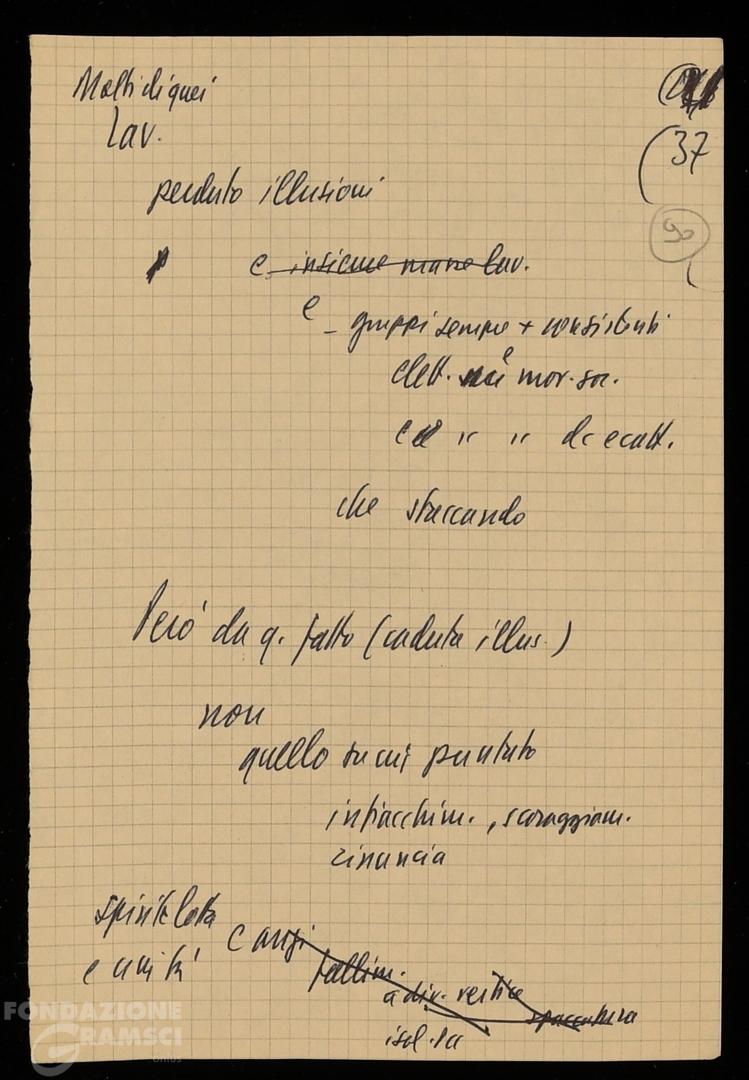 Molti di quei
lav.
(37
perduto illusioni
90
e insieme mano lav.
e
- gruppi sempre + consistenti
elett. e mor. soc.
e " " dc e catt.
che staccando
Però da q. fatto (caduta illus.)
non
quello su cui puntato
infiacchim., scoraggiam.
rinuncia
spirito lotta
e unità
e anzi
fallim.
a div. vertice
spaccatura
isol.
FONDAZIONE
GRAMSCI
onlus